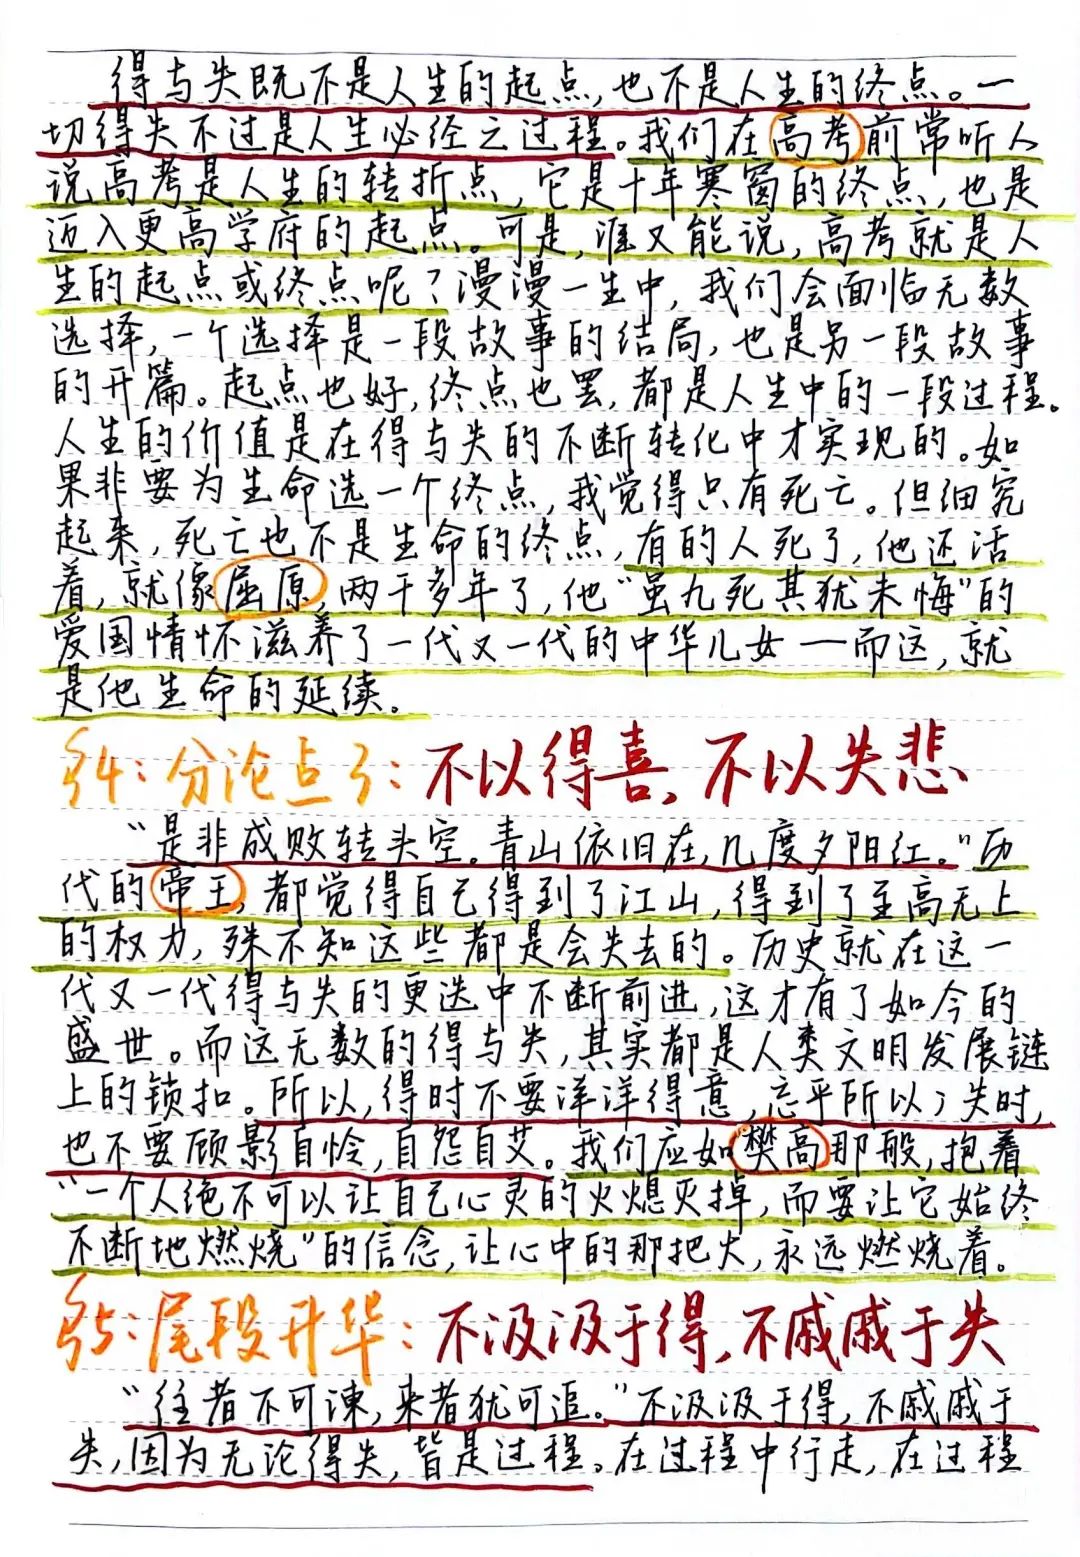 得与失既不是人生的起点,也不是人生的终点。一
切得失不过是人生必经之过程。我们在高考前常听人
说高考是人生的转折点,它是十年寒窗的终点,也是
迈入更高学府的起点。可是,谁又能说,高考就是人
生的起点或终点呢?漫漫一生中,我们会面临无数
选择,一个选择是一段故事的结局,也是另一段故事
的开篇。起点也好,终点也罢,都是人生中的一段过程。
人生的价值是在得与失的不断转化中才实现的。如
果非要为生命选一个终点,我觉得只有死亡。但细究
起来,死亡也不是生命的终点,有的人死了,他还活
着,就像屈原,两千多年了,他“虽九死其犹未悔”的
爱国情怀滋养了一代又一代的中华儿女——而这,就
是他生命的延续。
§4:分论点3:不以得喜,不以失悲
“是非成败转头空。青山依旧在,几度夕阳红。”历
代的帝王,都觉得自己得到了江山,得到了至高无上
的权力,殊不知这些都是会失去的。历史就在这一
代又一代得与失的更迭中不断前进,这才有了如今的
盛世。而这无数的得与失,其实都是人类文明发展链
上的锁扣。所以,得时不要洋洋得意,忘乎所以;失时,
也不要顾影自怜,自怨自艾。我们应如樊高那般,抱着
“一个人绝不可以让自己心灵的火熄灭掉,而要让它始终
不断地燃烧”的信念,让心中的那把火,永远燃烧着。
§5:尾段升华:不汲汲于得,不戚戚于失
“往者不可谏,来者犹可追。”不汲汲于得,不戚戚于
失,因为无论得失,皆是过程。在过程中行走,在过程